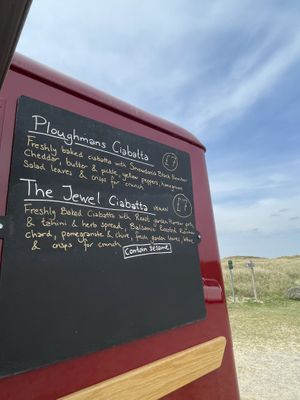 Ploughmans Ciabatta £7
Freshly baked ciabatta with Snowdonia Black Bomber
Cheddar, butter & pickle, yellow peppers, homegrown
Salad leaves & crisps for crunch
The Jewel Ciabatta VEGAN £7
Freshly Baked Ciabatta with Roast garden
& tahini & herb spread, Balsamic Roasted Rainbow
chard, pomegranate & chive, fresh garden leaves,
& crisps for crunch Contain Sesame